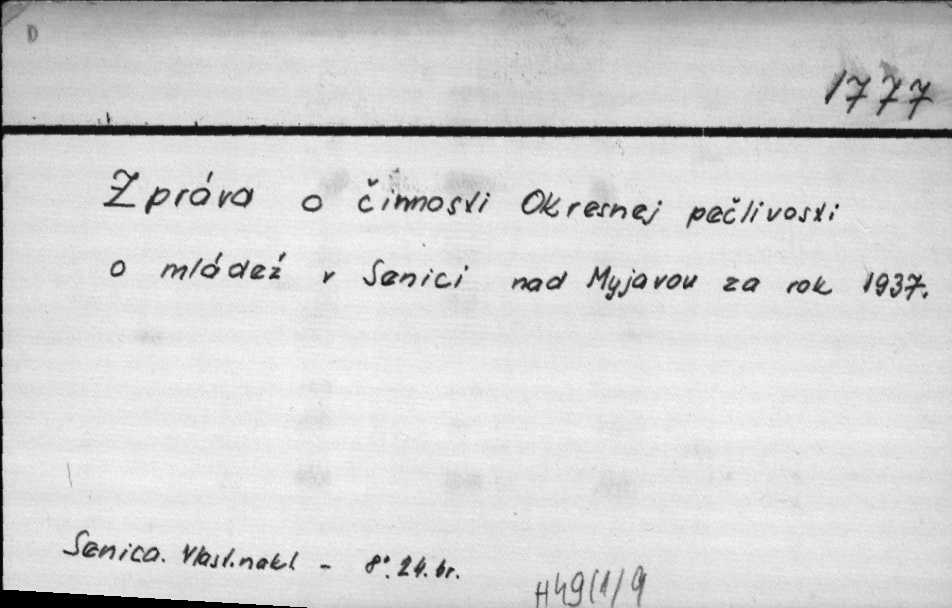 D
1777
Zpráva o činnosti Okresnej pečlivosti
o mládež v Senici nad Myjavou za rok 1937.
Senica. Vlast.nakl - 8°. 24. br.
H49(1/9